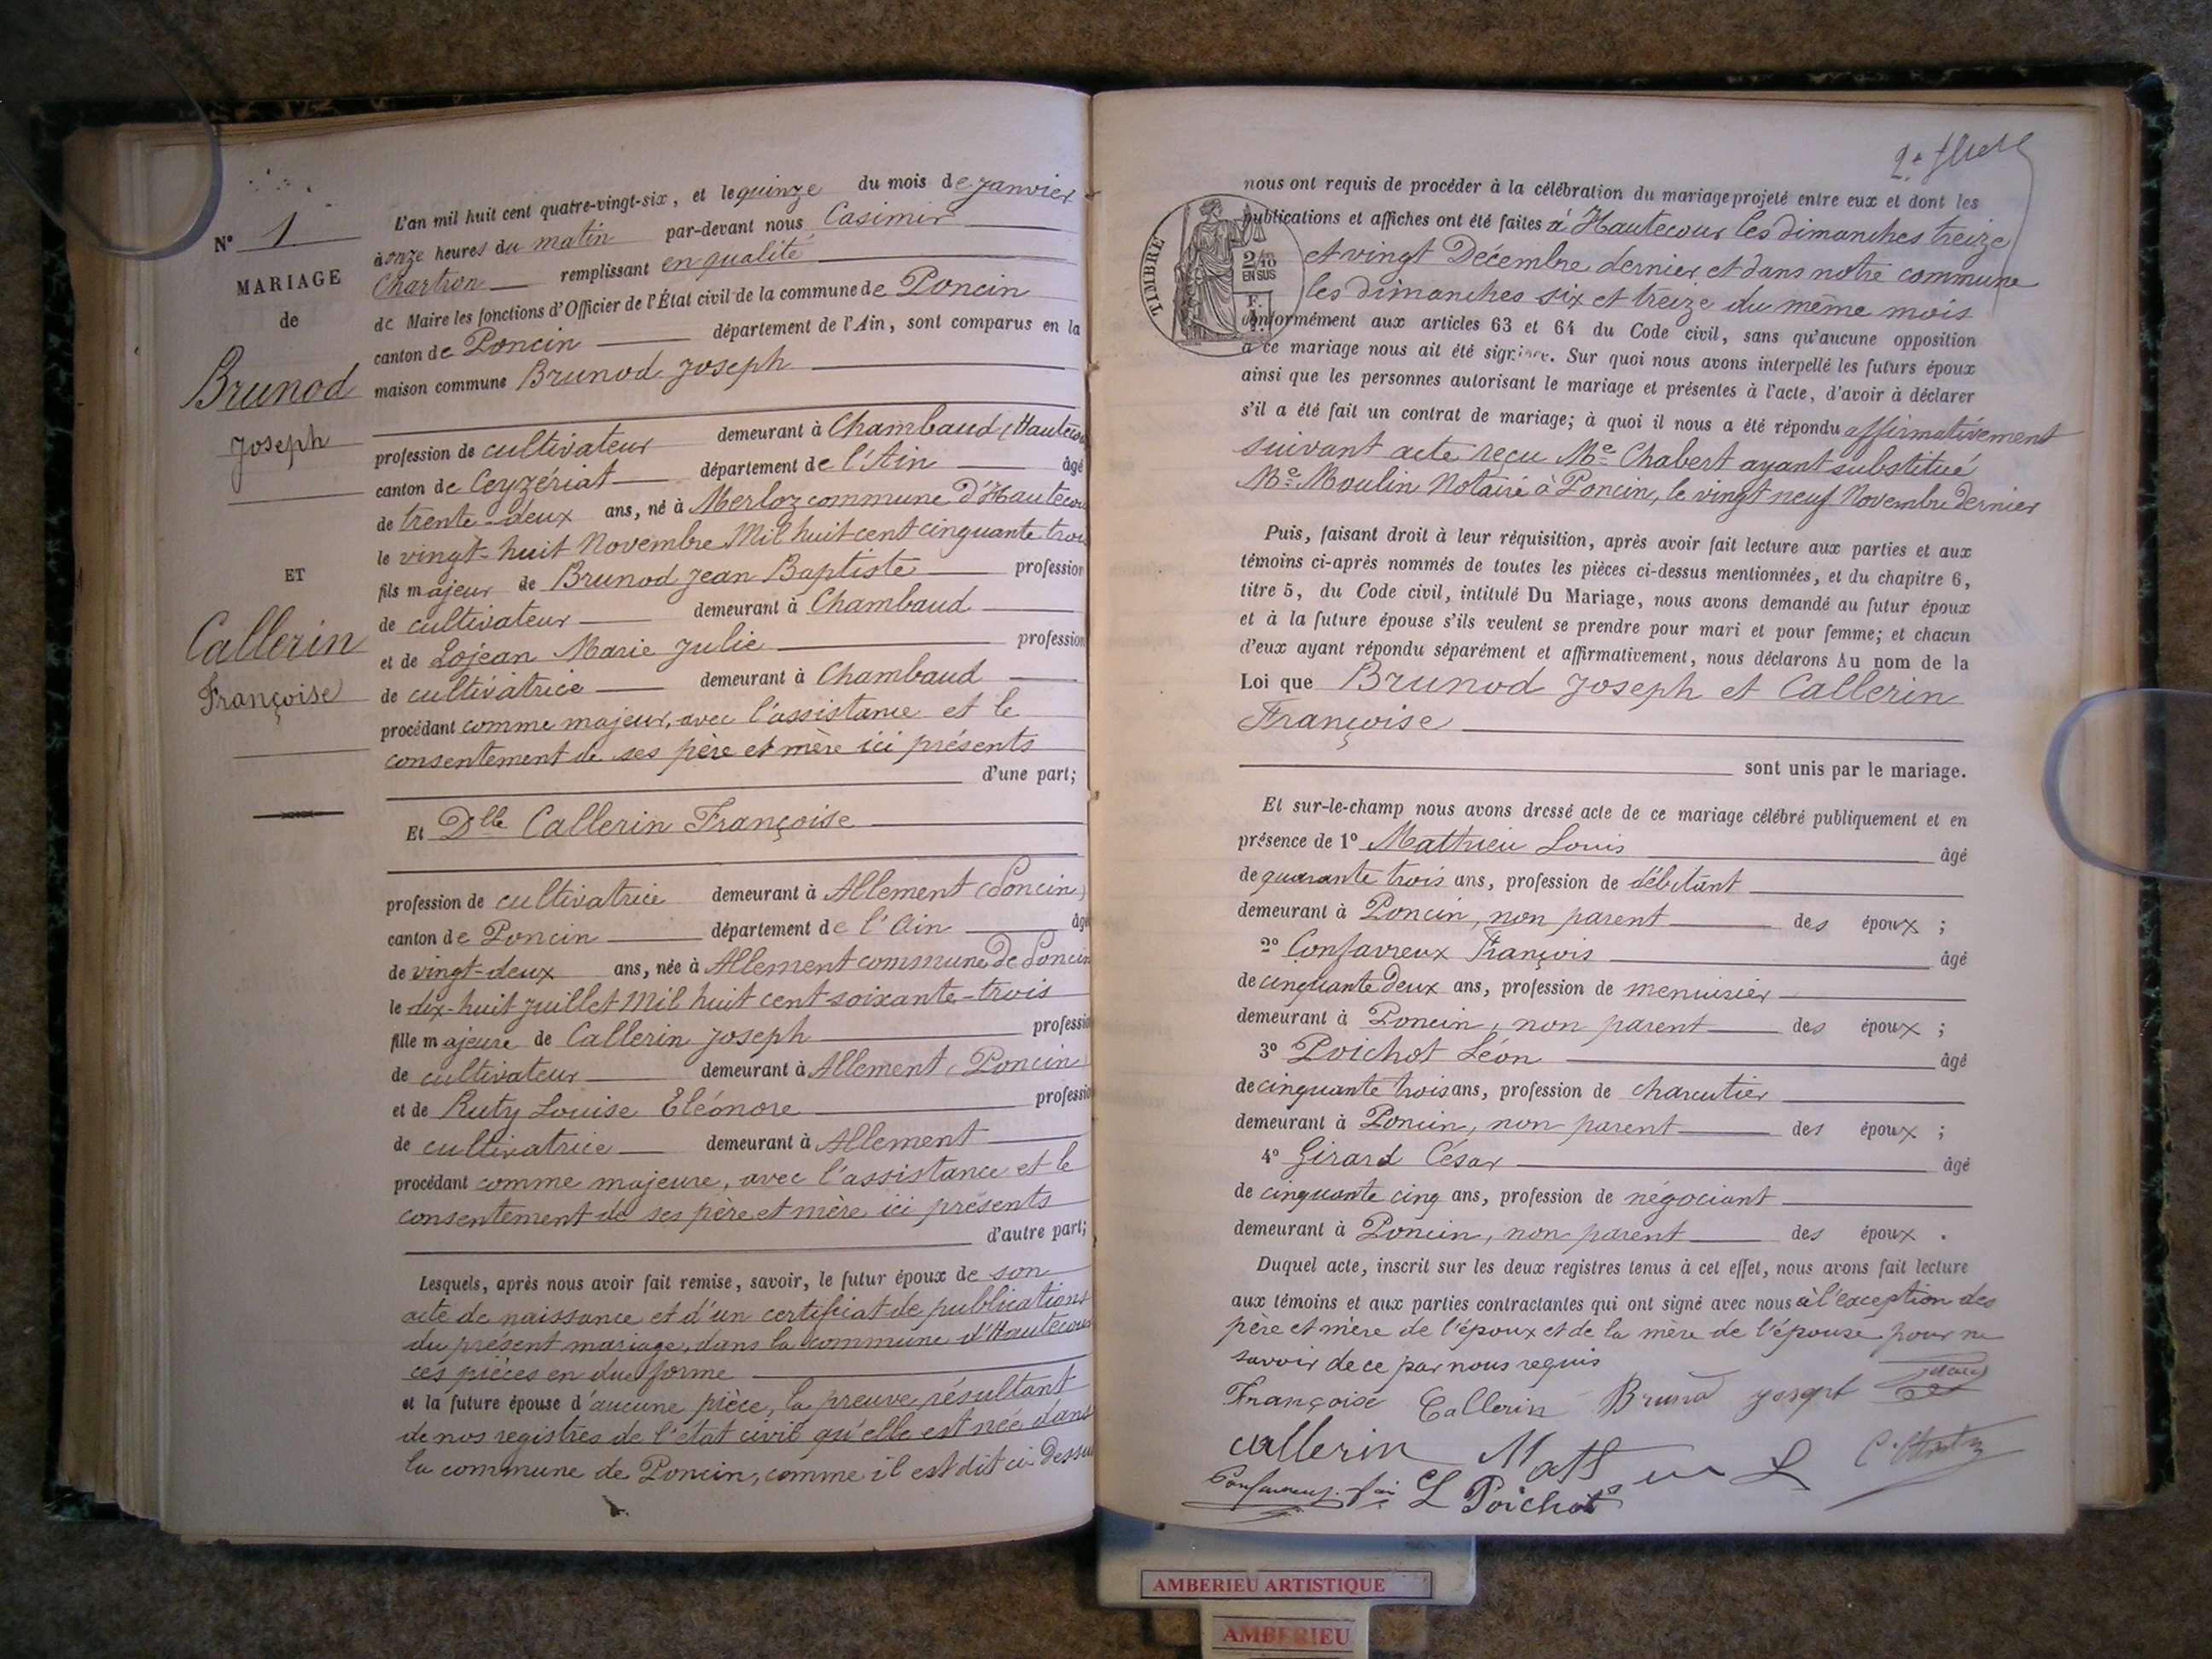 N° 1
MARIAGE
de
Brunod
Joseph
ET
Callerin
Françoise
L'an mil huit cent quatre-vingt-six, et le quinze du mois de Janvier
à onze heures du matin par-devant nous Casimir
Chartron remplissant en qualité
de Maire les fonctions d'Officier de l'État civil de la commune de Poncin
canton de Poncin département de l'Ain, sont comparus en la
maison commune Brunod Joseph
profession de cultivateur demeurant à Chambaud (Hautecour
canton de Ceyzériat département de l'Ain âgé
de trente-deux ans, né à Merloz commune d'Hautecour
le vingt-huit Novembre Mil huit cent cinquante trois
fils majeur de Brunod Jean Baptiste profession
de cultivateur demeurant à Chambaud
et de Lojean Marie Julie profession
de cultivatrice demeurant à Chambaud
procédant comme majeur, avec l'assistance et le
consentement de ses père et mère ici présents
d'une part;
Et Dlle Callerin Françoise
profession de cultivatrice demeurant à Allement (Poncin)
canton de Poncin département de l'Ain âgé
de vingt-deux ans, née à Allement commune de Poncin
le dix-huit Juillet Mil huit cent soixante-trois
fille majeure de Callerin Joseph profession
de cultivateur demeurant à Allement (Poncin)
et de Ruty Louise Eléonore profession
de cultivatrice demeurant à Allement
procédant comme majeure, avec l'assistance et le
consentement de ses père et mère ici présents
d'autre part;
Lesquels, après nous avoir fait remise, savoir, le futur époux de son
acte de naissance et d'un certificat de publications
du présent mariage, dans la commune d'Hautecour
ces pièces en due forme
et la future épouse d'aucune pièce, la preuve résultant
de nos registres de l'état civil qu'elle est née dans
la commune de Poncin, comme il est dit ci-dessus
TIMBRE
2/10
EN SUS
nous ont requis de procéder à la célébration du mariage projeté entre eux et dont les
publications et affiches ont été faites à Hautecour les dimanches treize
et vingt Décembre dernier et dans notre commune
les dimanches six et treize du même mois
conformément aux articles 63 et 64 du Code civil, sans qu'aucune opposition
à ce mariage nous ait été signifiée. Sur quoi nous avons interpellé les futurs époux
ainsi que les personnes autorisant le mariage et présentes à l'acte, d'avoir à déclarer
s'il a été fait un contrat de mariage; à quoi il nous a été répondu affirmativement
suivant acte reçu Me Chabert ayant substitué
Me Moulin Notaire à Poncin, le vingt neuf Novembre dernier
Puis, faisant droit à leur réquisition, après avoir fait lecture aux parties et aux
témoins ci-après nommés de toutes les pièces ci-dessus mentionnées, et du chapitre 6,
titre 5, du Code civil, intitulé Du Mariage, nous avons demandé au futur époux
et à la future épouse s'ils veulent se prendre pour mari et pour femme; et chacun
d'eux ayant répondu séparément et affirmativement, nous déclarons Au nom de la
Loi que Brunod Joseph et Callerin
Françoise
sont unis par le mariage.
Et sur-le-champ nous avons dressé acte de ce mariage célébré publiquement et en
présence de 1° Mathieu Louis âgé
de quarante trois ans, profession de débitant
demeurant à Poncin, non parent des époux ;
2° Confavreux François âgé
de cinquante deux ans, profession de menuisier
demeurant à Poncin, non parent des époux ;
3° Poichot Léon âgé
de cinquante trois ans, profession de charcutier
demeurant à Poncin, non parent des époux ;
4° Girard César âgé
de cinquante cinq ans, profession de négociant
demeurant à Poncin, non parent des époux .
Duquel acte, inscrit sur les deux registres tenus à cet effet, nous avons fait lecture
aux témoins et aux parties contractantes qui ont signé avec nous à l'exception des
père et mère de l'époux et de la mère de l'épouse pour ne
savoir de ce par nous requis
Françoise Callerin Brunod Joseph
Callerin
L Poichot
AMBERIEU ARTISTIQUE
AMBERIEU